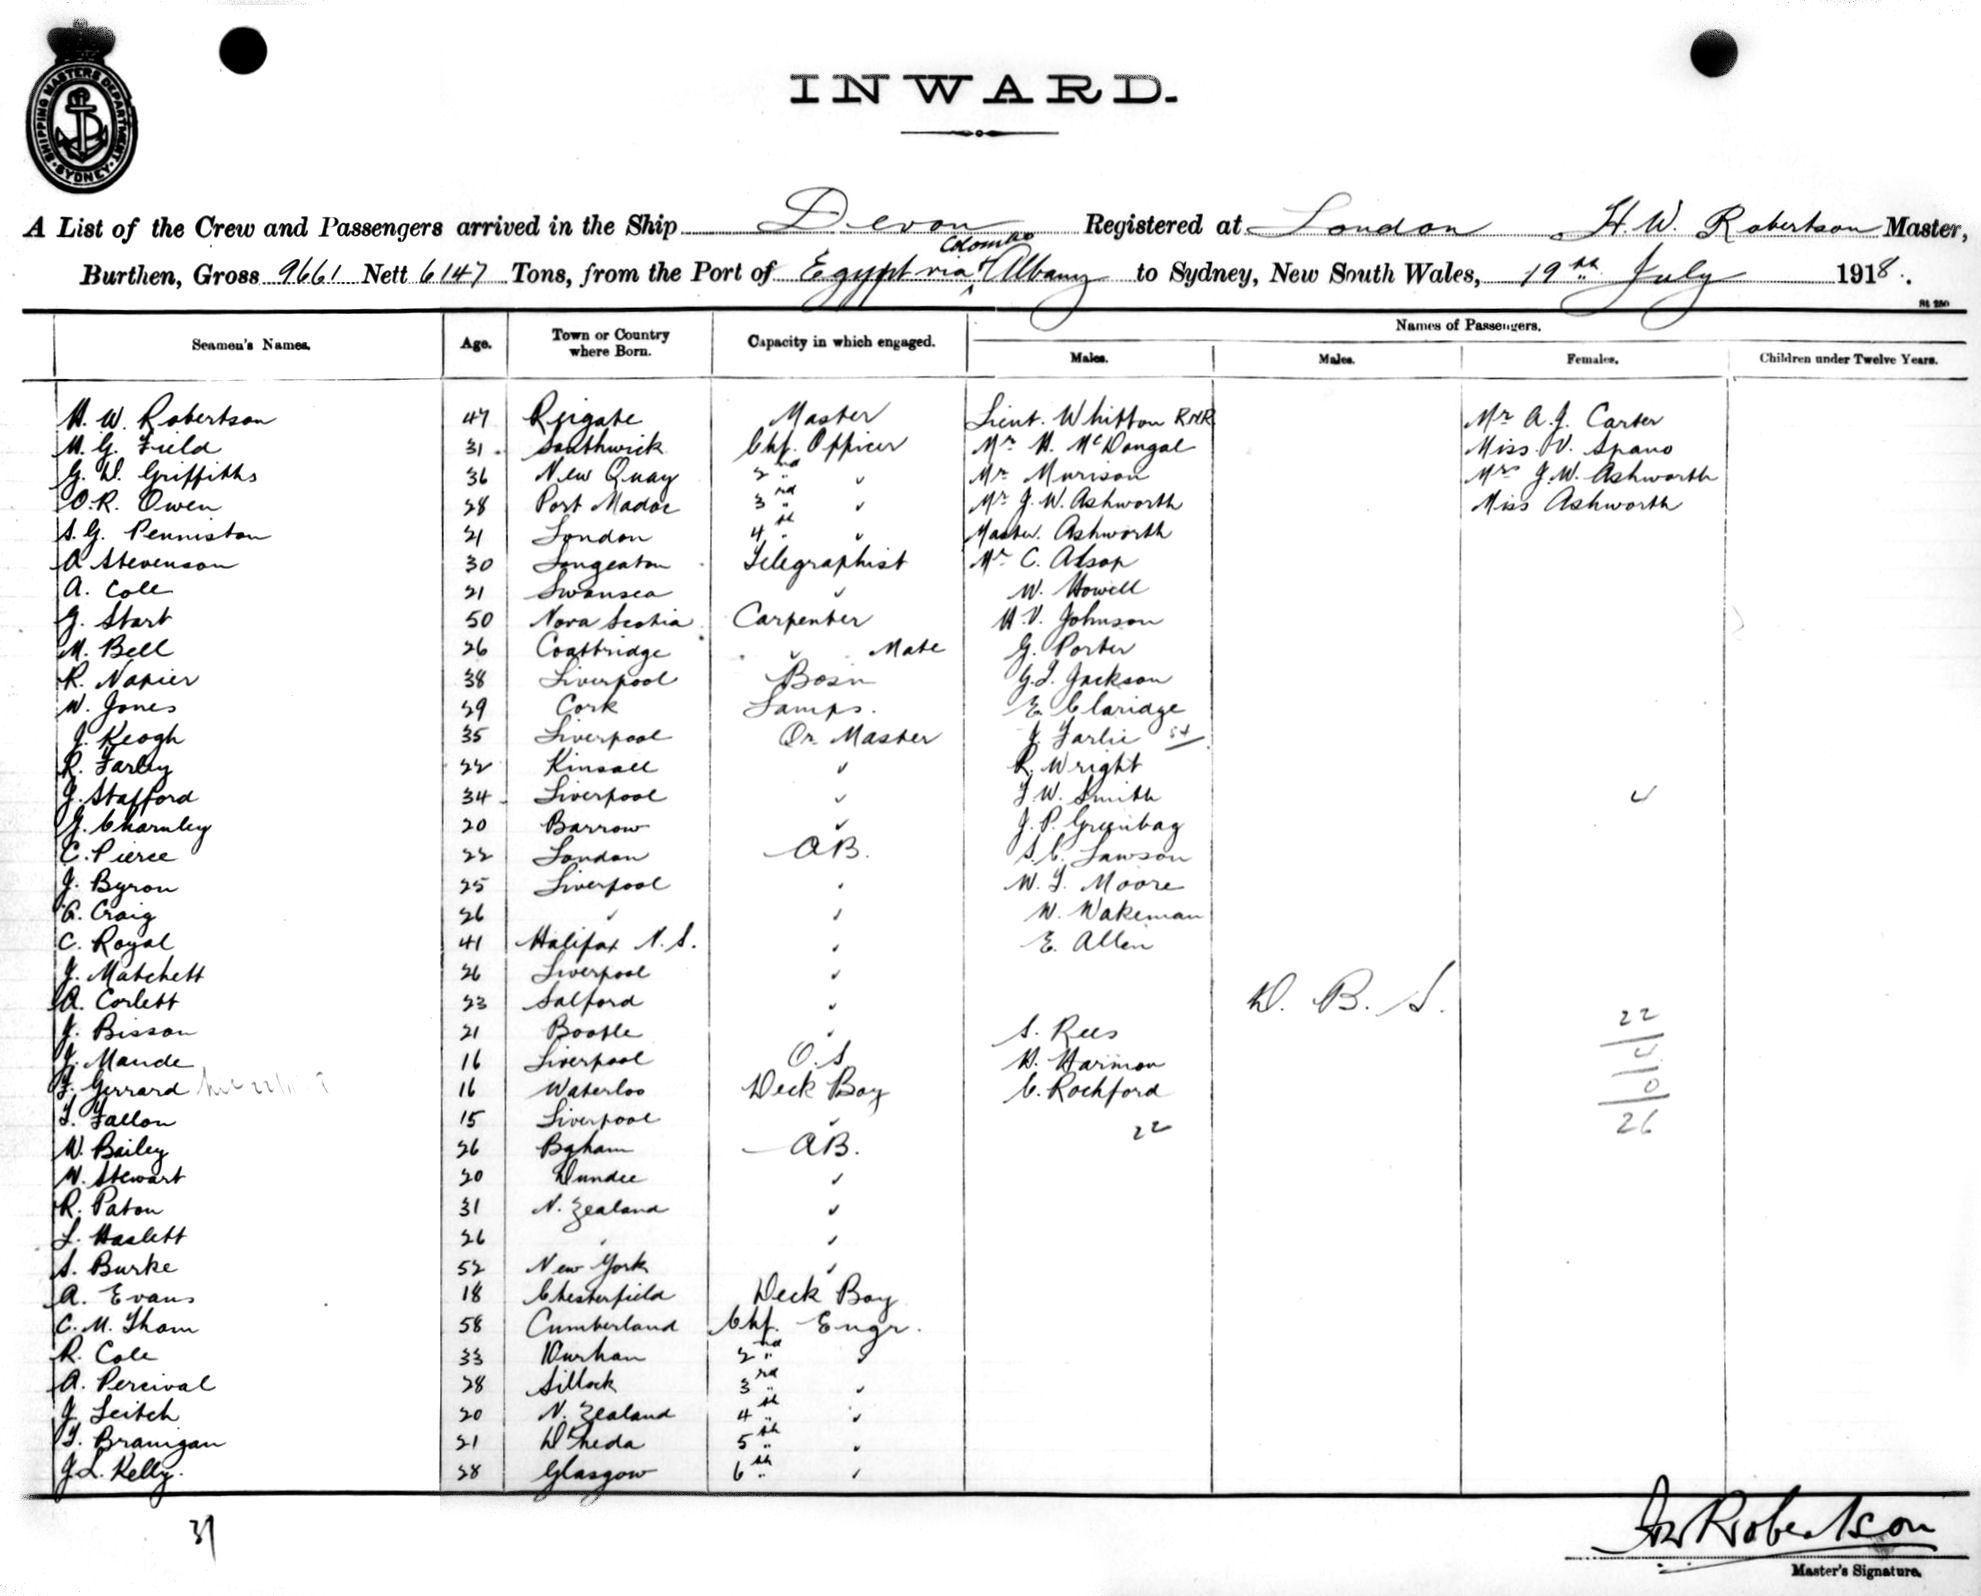 SHIPPING MASTERS DEPARTMENT · SYDNEY ·
INWARD.
A List of the Crew and Passengers arrived in the Ship Devon Registered at London H. W. Robertson Master,
Colombo
Burthen, Gross 9661 Nett 6147 Tons, from the Port of Egypt via & Albany to Sydney, New South Wales, 19th July 1918.
St 250
Seamen's Names. Age. Town or Country where Born. Capacity in which engaged. Names of Passengers.
Males. Males. Females. Children under Twelve Years.
H. W. Robertson 47 Reigate Master Lieut. Whitton RNR Mrs A. J. Carter
H. G. Field 31 Southwick Chf. Officer Mr H. McDongal Miss V. Spano
G. D. Griffiths 36 New Quay 2nd " ✓ Mr Murison Mrs J. W. Ashworth
O. R. Owen 28 Port Madoc 3rd " ✓ Mr J. W. Ashworth Miss Ashworth
S. G. Penniston 21 London 4th " ✓ Master. Ashworth
A Stevenson 30 Longeaton Telegraphist Mr C. Alsop
A. Cole 21 Swansea ✓ W. Howell
G. Start 50 Nova Scotia Carpenter H. V. Johnson
M. Bell 26 Coatbridge ✓ Mate G. Porter
R. Napier 38 Liverpool Bosn G. T. Jackson
W. Jones 29 Cork Lamps. E. Claridge
J. Keogh 35 Liverpool Qr. Master J. Farlie
R. Farley 22 Kinsale ✓ R. Wright
J. Stafford 34 Liverpool ✓ F. W. Smith ✓
J. Charnley 20 Barrow ✓ J. P. Greenbag
C. Pierce 22 London AB. S. C. Lawson
J. Byron 25 Liverpool ✓ W. T. Moore
G. Craig 26 ✓ ✓ W. Wakeman
C. Royal 41 Halifax N. S. ✓ E. Allen
J. Matchett 26 Liverpool ✓
A. Corlett 23 Salford ✓ D. B. S.
J. Bisson 21 Bootle ✓ S. Rees 22
J. Maude 16 Liverpool O. S H. Harmon 4
F. Gerrard 16 Waterloo Deck Boy C. Rochford 0
T. Fallon 15 Liverpool ✓ 22 26
W. Bailey 26 Bgham AB.
W. Stewart 20 Dundee ✓
R. Paton 31 N. Zealand ✓
L. Haslett 26 ✓ ✓
S. Burke 52 New York ✓
A. Evans 18 Chesterfield Deck Boy
C. M. Thom 58 Cumberland Chf. Engr.
R. Cole 33 Durham 2nd " ✓
A. Percival 28 Silloth 3rd " ✓
J. Leitch 20 N. Zealand 4th " ✓
T. Branigan 21 D'heda 5th " ✓
J. L. Kelly. 28 Glasgow 6th " ✓
HW Robertson
Master's Signature.